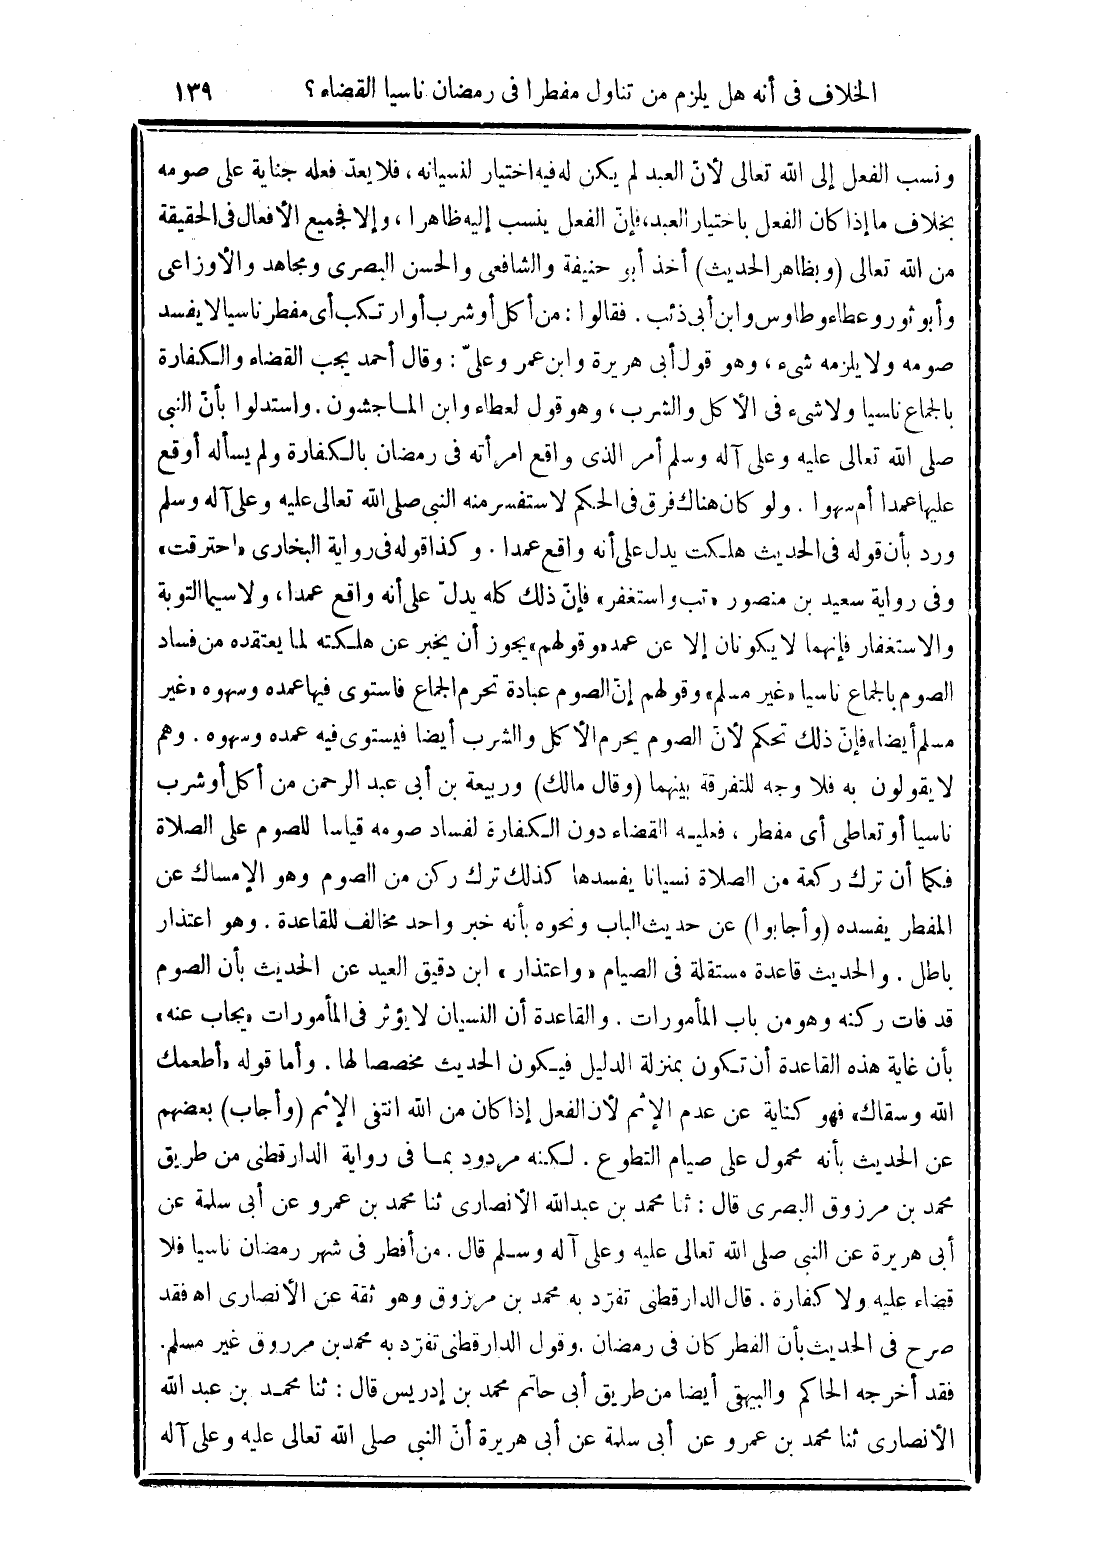 الخلاف فى أنه هل يلزم من تناول مفطرا فى رمضان ناسيا القضاء؟ ١٣٩
ونسب الفعل إلى الله تعالى لأنّ العبد لم يكن له فيه اختيار لنسيانه، فلا يعدّ فعله جناية على صومه
بخلاف ما إذا كان الفعل باختيار العبد، فإنّ الفعل ينسب إليه ظاهرا، وإلا فجميع الأفعال فى الحقيقة
من الله تعالى (وبظاهر الحديث) أخذ أبو حنيفة والشافعى والحسن البصرى ومجاهد والأوزاعى
وأبو ثور وعطاء وطاوس وابن أبى ذئب. فقالوا: من أكل أو شرب أو ارتكب أى مفطر ناسيا لا يفسد
صومه ولا يلزمه شىء، وهو قول أبى هريرة وابن عمر وعلىّ: وقال أحمد يجب القضاء والكفارة
بالجماع ناسيا ولا شىء فى الأكل والشرب، وهو قول لعطاء وابن الماجشون. واستدلوا بأنّ النبى
صلى الله تعالى عليه وعلى آله وسلم أمر الذى واقع امرأته فى رمضان بالكفارة ولم يسأله أوقع
عليها عمدا أم سهوا. ولو كان هناك فرق فى الحكم لاستفسر منه النبى صلى الله تعالى عليه وعلى آله وسلم
ورد بأن قوله فى الحديث هلكت يدل على أنه واقع عمدا. وكذا قوله فى رواية البخارى «احترقت»
وفى رواية سعيد بن منصور «تب واستغفر» فإنّ ذلك كله يدلّ على أنه واقع عمدا، ولا سيما التوبة
والاستغفار فإنهما لا يكونان إلا عن عمد «وقولهم» يجوز أن يخبر عن هلكته لما يعتقده من فساد
الصوم بالجماع ناسيا «غير مسلم» وقولهم إنّ الصوم عبادة تحرم الجماع فاستوى فيها عمده وسهوه «غير
مسلم أيضا» فإنّ ذلك تحكم لأنّ الصوم يحرم الأكل والشرب أيضا فيستوى فيه عمده وسهوه. وهم
لا يقولون به فلا وجه للتفرقة بينهما (وقال مالك) وربيعة بن أبى عبد الرحمن من أكل أو شرب
ناسيا أو تعاطى أى مفطر، فعليه القضاء دون الكفارة لفساد صومه قياسا للصوم على الصلاة
فكما أن ترك ركعة من الصلاة نسيانا يفسدها كذلك ترك ركن من الصوم وهو الإمساك عن
المفطر يفسده (وأجابوا) عن حديث الباب ونحوه بأنه خبر واحد مخالف للقاعدة. وهو اعتذار
باطل. والحديث قاعدة مستقلة فى الصيام «واعتذار» ابن دقيق العيد عن الحديث بأن الصوم
قد فات ركنه وهو من باب المأمورات. والقاعدة أن النسيان لا يؤثر فى المأمورات «يجاب عنه»
بأن غاية هذه القاعدة أن تكون بمنزلة الدليل فيكون الحديث مخصصا لها. وأما قوله «أطعمك
الله وسقاك» فهو كناية عن عدم الإثم لأن الفعل إذا كان من الله انتفى الإثم (وأجاب) بعضهم
عن الحديث بأنه محمول على صيام التطوع. لكنه مردود بما فى رواية الدارقطنى من طريق
محمد بن مرزوق البصرى قال: ثنا محمد بن عبد الله الأنصارى ثنا محمد بن عمرو عن أبى سلمة عن
أبى هريرة عن النبى صلى الله تعالى عليه وعلى آله وسلم قال. من أفطر فى شهر رمضان ناسيا فلا
قضاء عليه ولا كفارة. قال الدارقطنى تفرّد به محمد بن مرزوق وهو ثقة عن الأنصارى اه فقد
صرح فى الحديث بأن الفطر كان فى رمضان. وقول الدارقطنى تفرّد به محمد بن مرزوق غير مسلم.
فقد أخرجه الحاكم والبيهقى أيضا من طريق أبى حاتم محمد بن إدريس قال: ثنا محمد بن عبد الله
الأنصارى ثنا محمد بن عمرو عن أبى سلمة عن أبى هريرة أنّ النبى صلى الله تعالى عليه وعلى آله